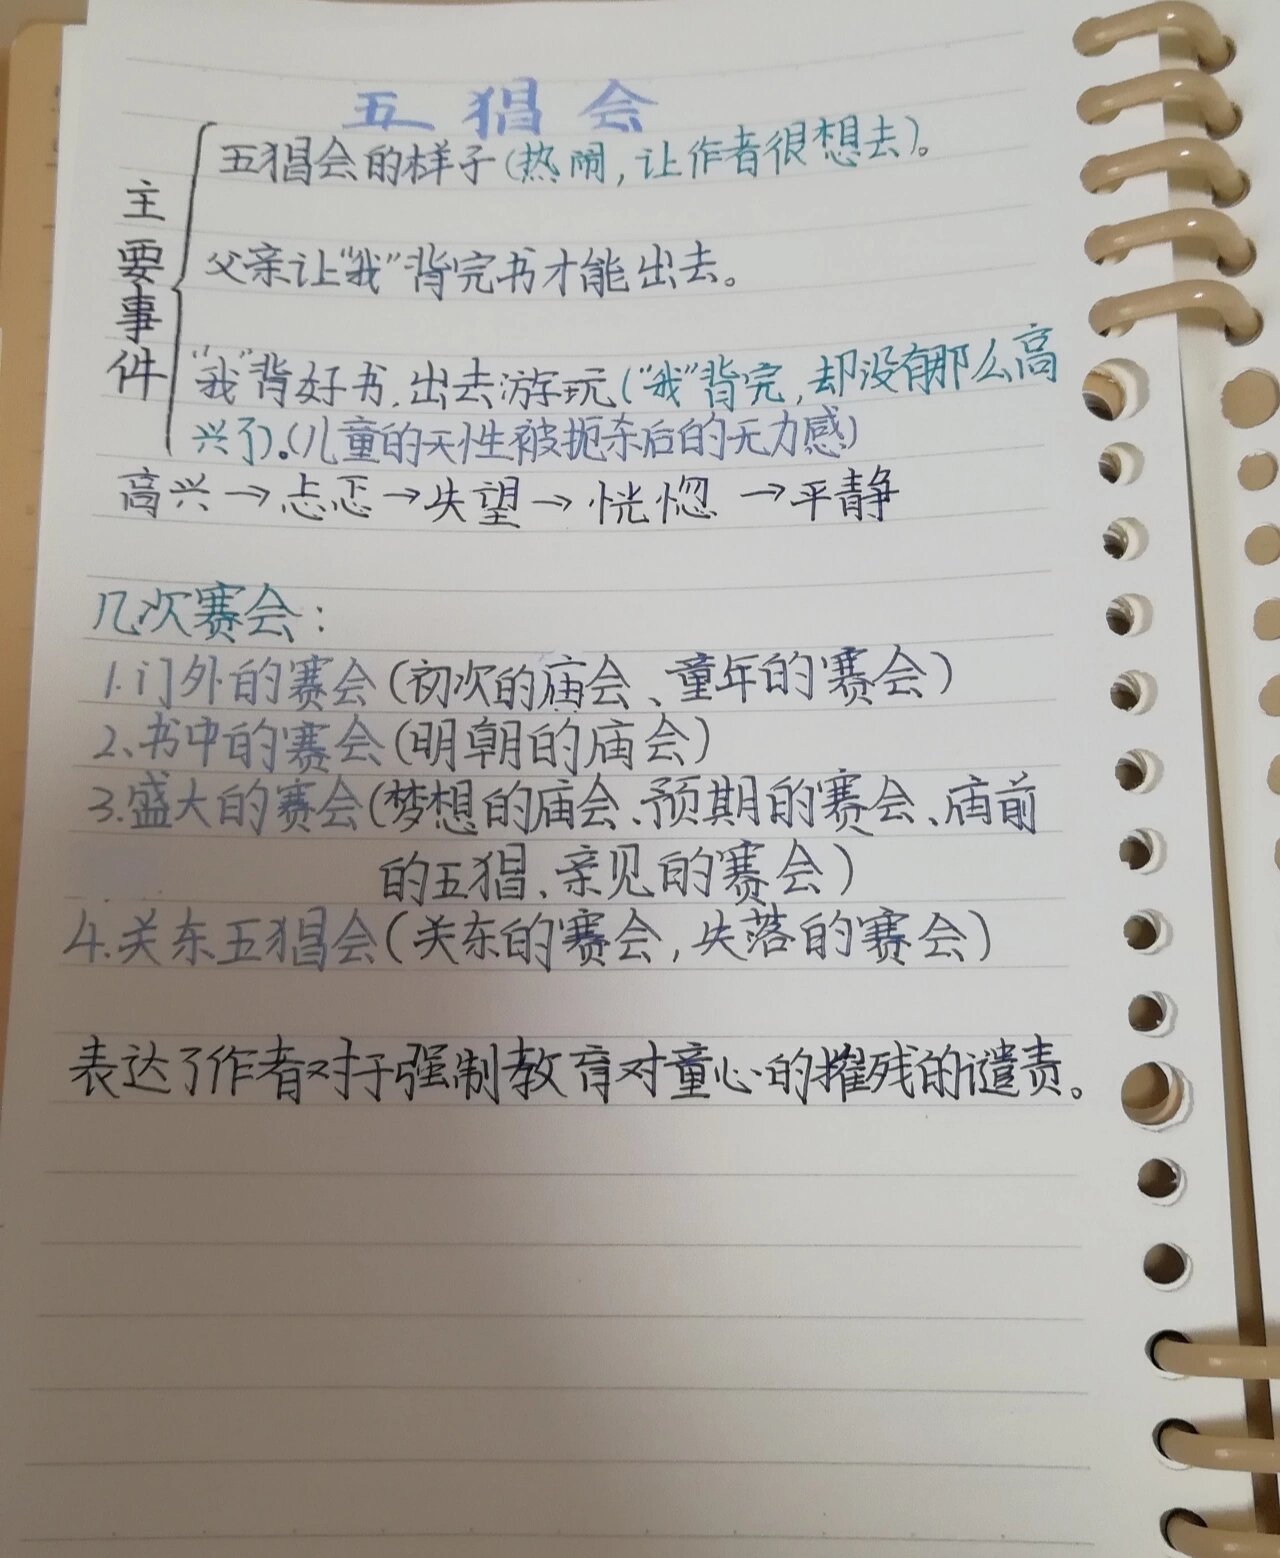 五猖会
主要事件
五猖会的样子(热闹,让作者很想去)。
父亲让“我”背完书才能出去。
“我”背好书,出去游玩(“我”背完,却没有那么高
兴了)。(儿童的天性被扼杀后的无力感)
高兴→忐忑→失望→恍惚→平静
几次赛会:
1.门外的赛会(初次的庙会、童年的赛会)
2、书中的赛会(明朝的庙会)
3.盛大的赛会(梦想的庙会、预期的赛会、庙前
的五猖、亲见的赛会)
4.关东五猖会(关东的赛会,失落的赛会)
表达了作者对于强制教育对童心的摧残的谴责。